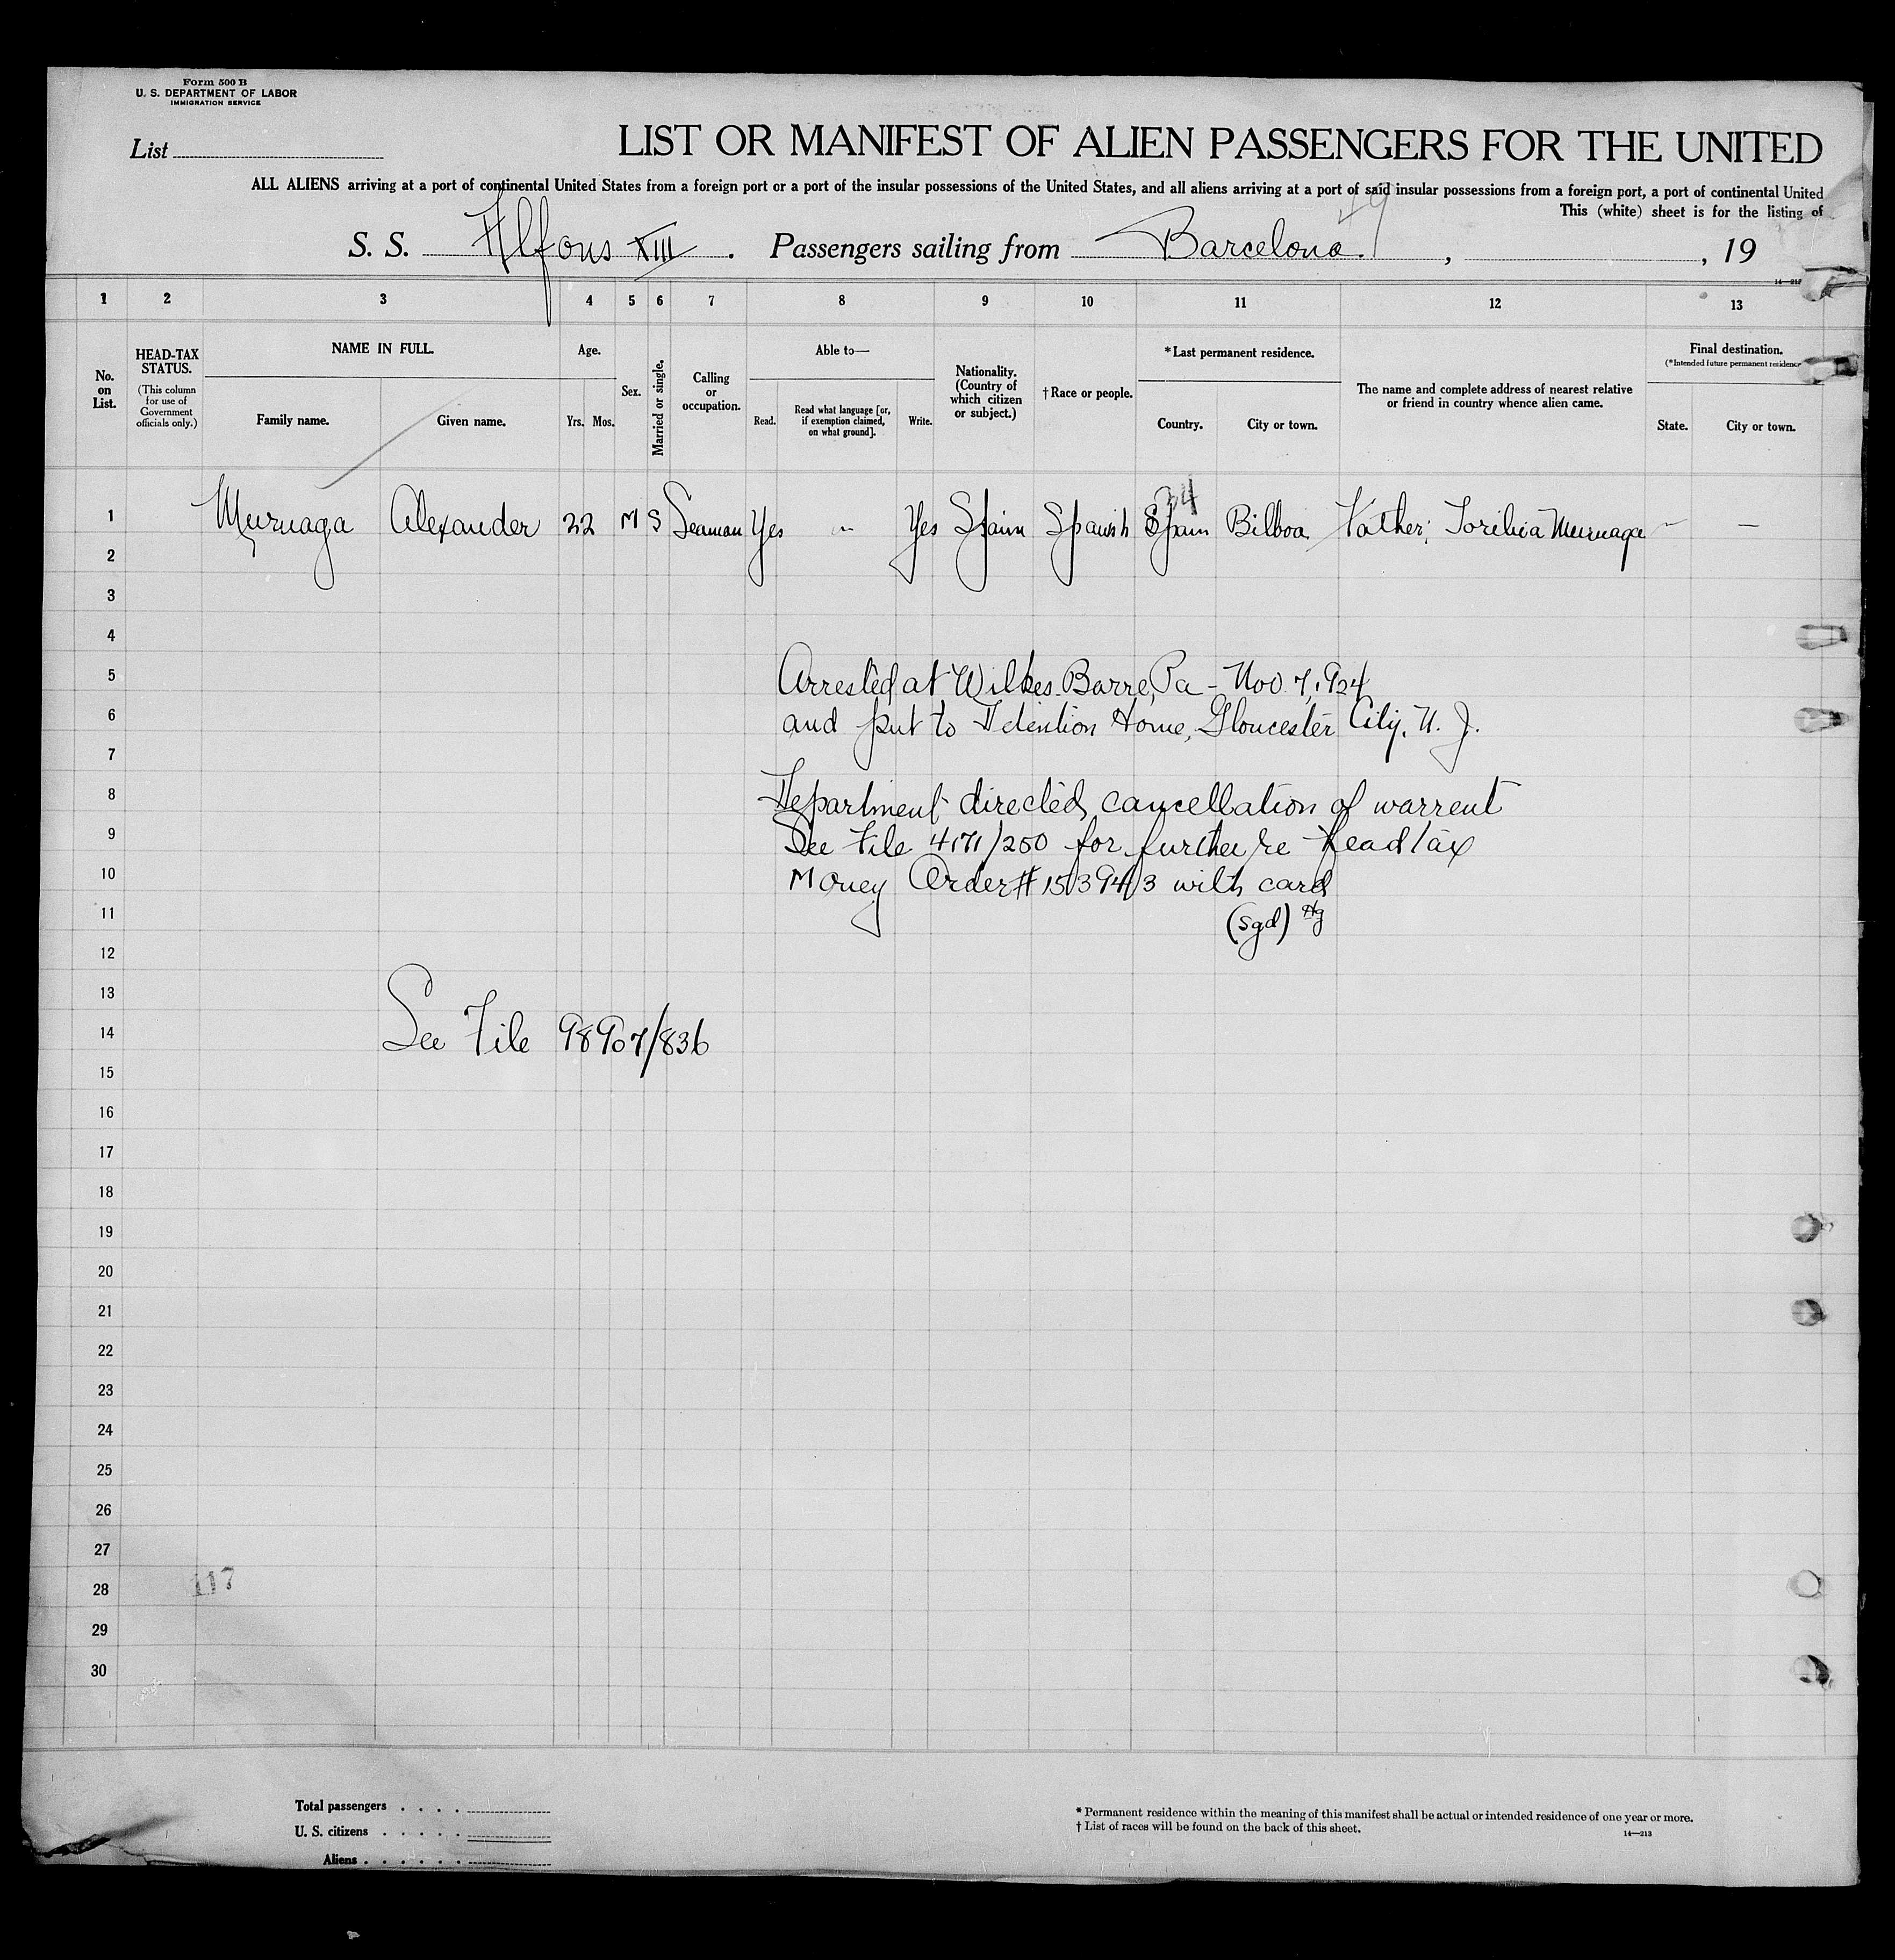 Form 500 B
U. S. DEPARTMENT OF LABOR
IMMIGRATION SERVICE
List
LIST OR MANIFEST OF ALIEN PASSENGERS FOR THE UNITED
ALL ALIENS arriving at a port of continental United States from a foreign port or a port of the insular possessions of the United States, and all aliens arriving at a port of said insular possessions from a foreign port, a port of continental United
This (white) sheet is for the listing of
49
S. S. Alfons XIII . Passengers sailing from Barcelona. , , 19
1 2 3 4 5 6 7 8 9 10 11 12 13
No. on List.
HEAD-TAX STATUS.
(This column for use of Government officials only.)
NAME IN FULL.
Family name. Given name.
Age.
Yrs. Mos.
Sex.
Married or single.
Calling or occupation.
Able to—
Read. Read what language [or, if exemption claimed, on what ground]. Write.
Nationality. (Country of which citizen or subject.)
† Race or people.
* Last permanent residence.
Country. City or town.
The name and complete address of nearest relative or friend in country whence alien came.
Final destination.
(* Intended future permanent residence
State. City or town.
34
1 Muruaga Alexander 22 M S Seaman Yes — Yes Spain Spanish Spain Bilboa Father; Muruaga – —
2
3
4
5 Arrested at Wilkes-Barre, Pa - Nov 7, 1924
6 and put to Detention Home, Gloucester City, N. J.
7
8 Department directed cancellation of warrent
9 See File 4171/250 for further re head tax
10 Money Order # 153943 with card
11 (sgd) Hg
12
13
14 See File 98907/836
15
16
17
18
19
20
21
22
23
24
25
26
27
28 117
29
30
Total passengers . . . .
U. S. citizens . . . . .
Aliens . . . . . .
* Permanent residence within the meaning of this manifest shall be actual or intended residence of one year or more.
† List of races will be found on the back of this sheet.
14—213